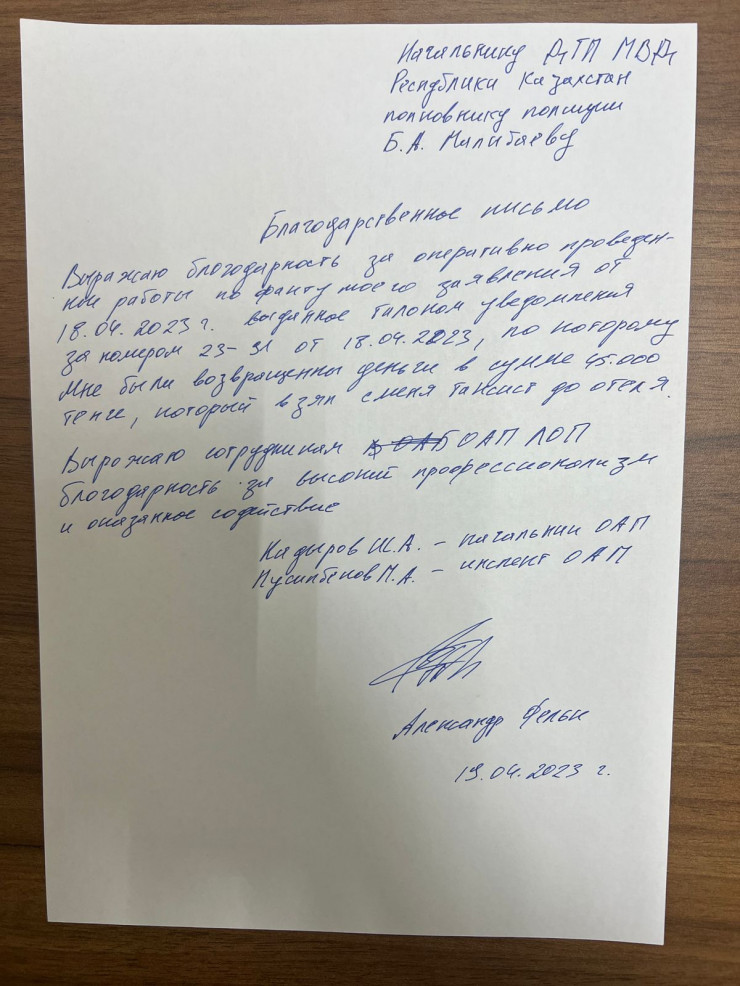 Начальнику ДТП МВД
Республики Казахстан
полковнику полиции
Б.А. Малибаеву
Благодарственное письмо
Выражаю благодарность за оперативно проведен-
ные работы по факту моего заявления от
18.04.2023 г. выданное талоном уведомления
за номером 23-31 от 18.04.2023, по которому
мне были возвращенны деньги в сумме 45.000
тенге, который взял с меня таксист до отеля.
Вырожаю сотрудникам ОАП ЛОП
благодарность за высокий профессионолизм
и оказанное содействие
Кадыров Ш.А. - начальник ОАП
Пусипбеков М.А. - инспект ОАП
Александр
19.04.2023 г.